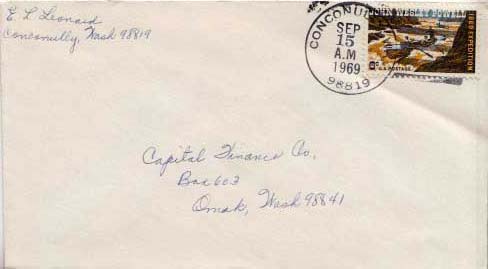 E L Leonard
Conconully, Wash 98819
CONCONU
SEP
15
A.M
1969
98819
JOHN WESLEY POWELL
1869 EXPEDITION
6c U.S. POSTAGE
Capital Finance Co,
Box 603
Omak, Wash 98841